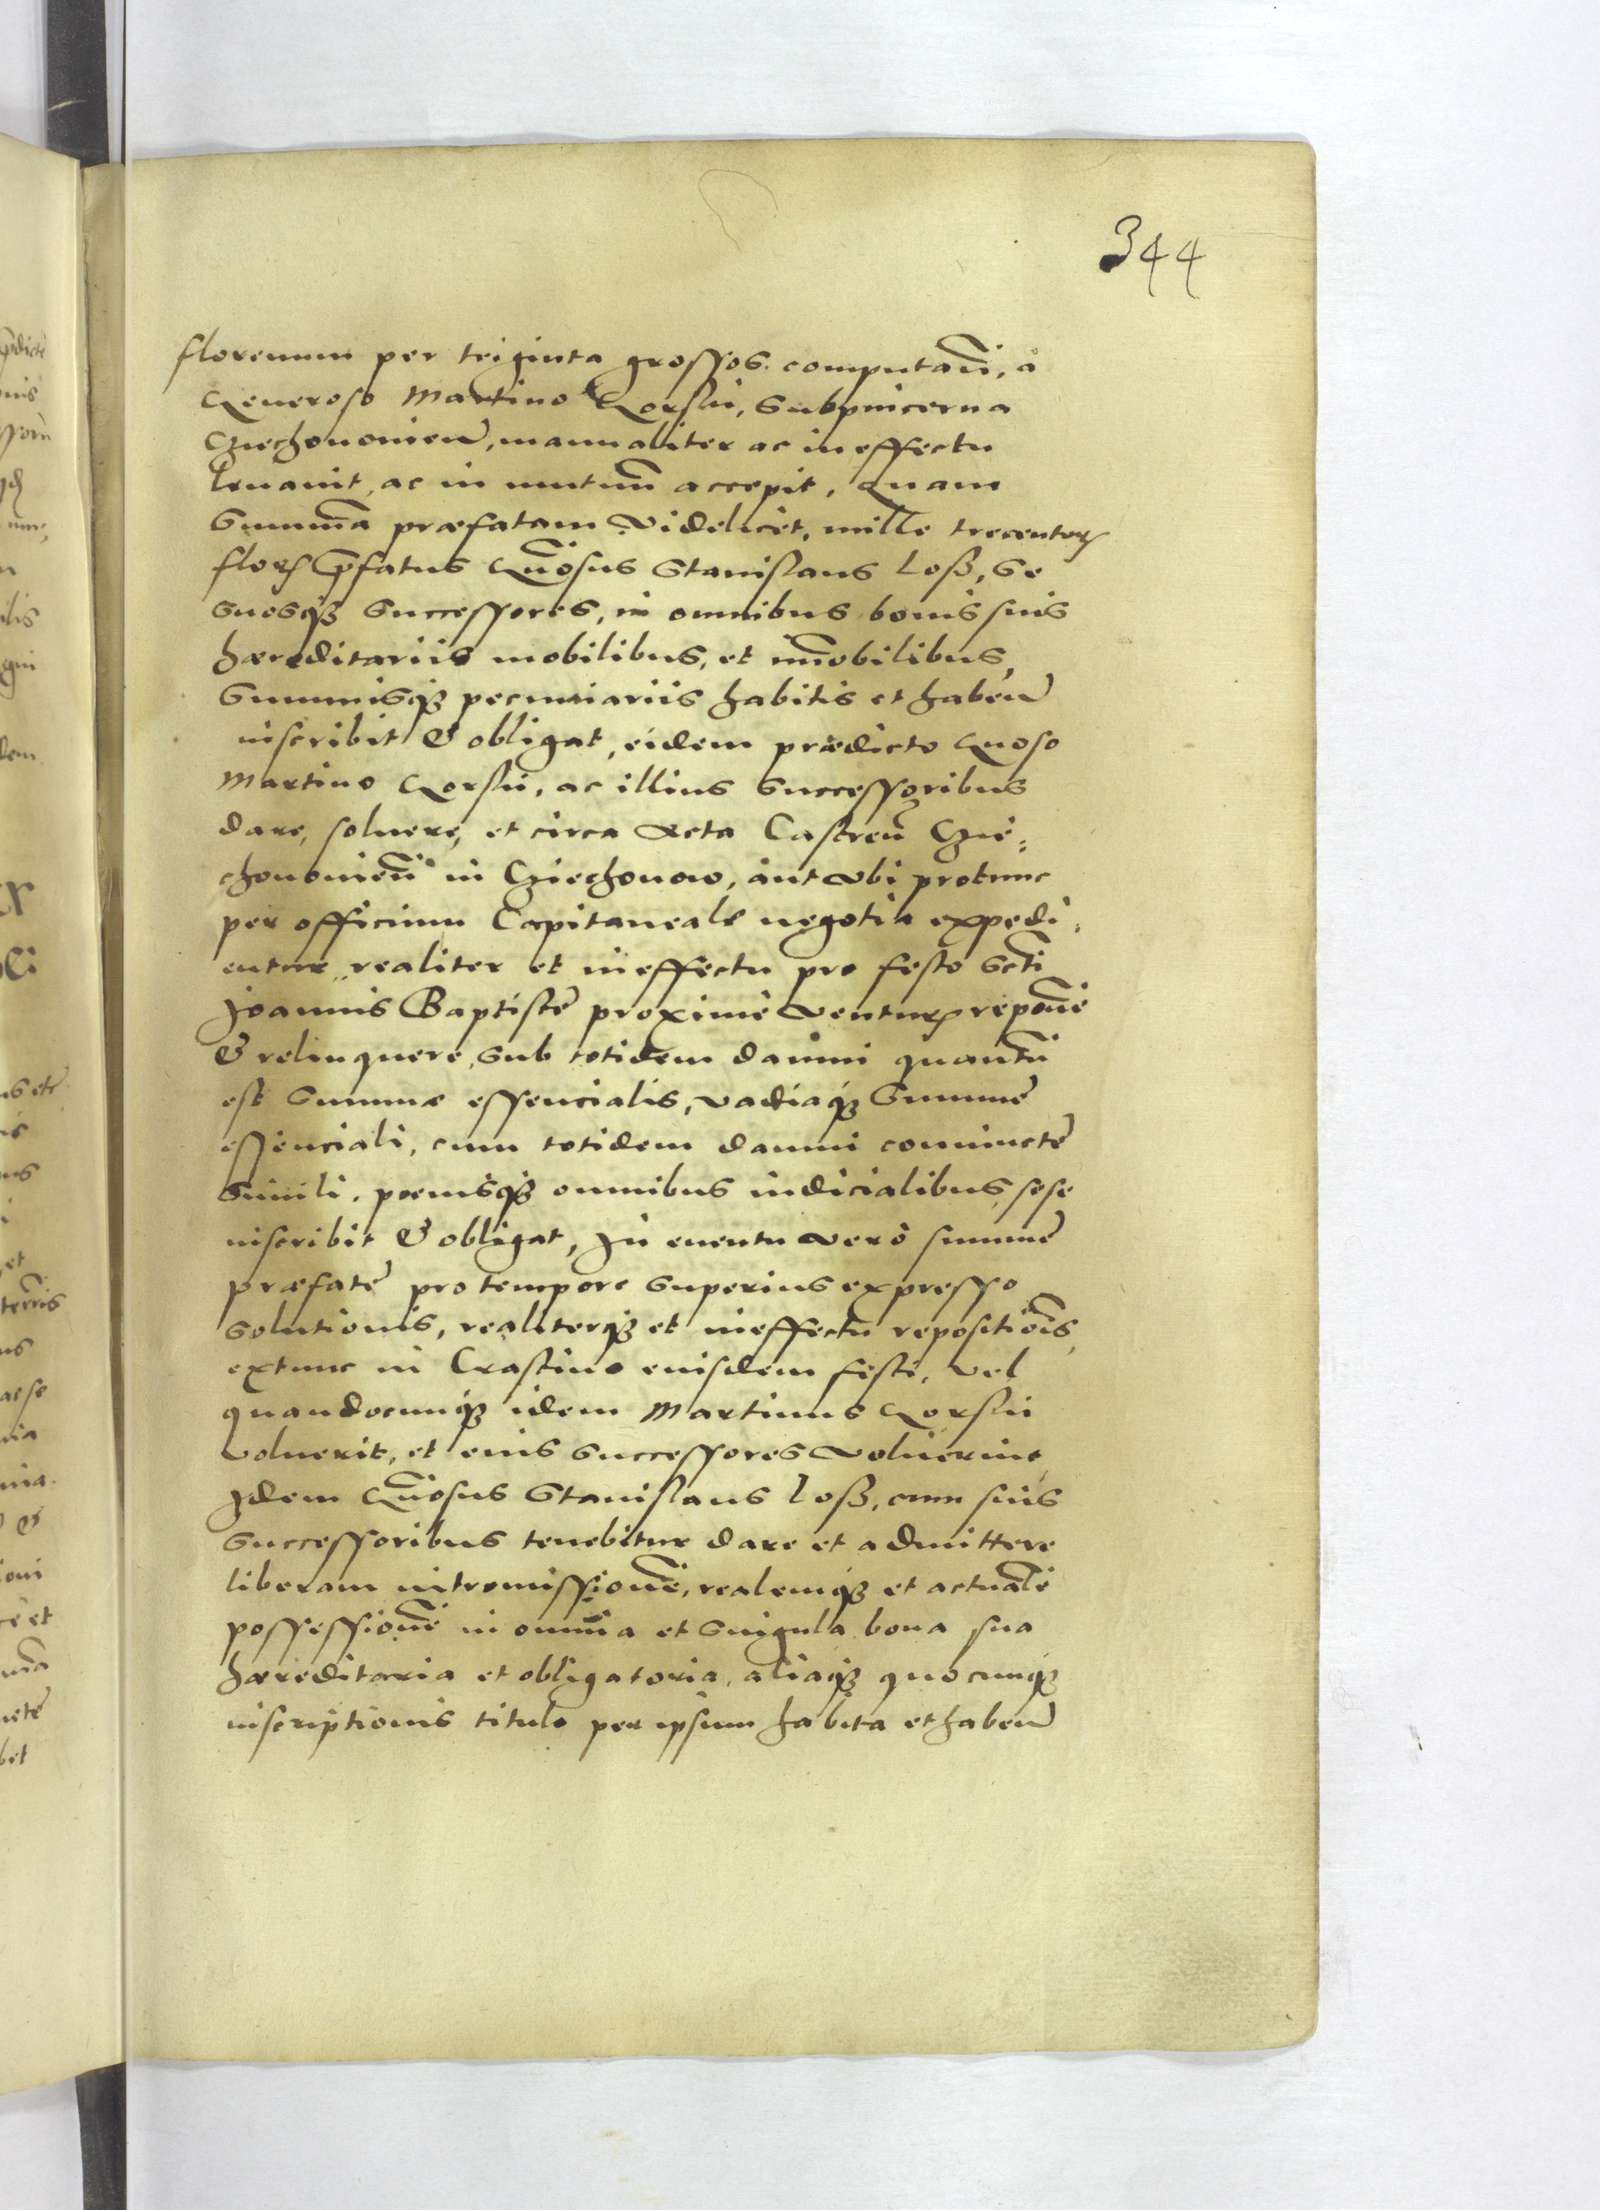 344
florenum per triginta grossos computan̄, à
Generoso Martino Gorski, Subpincerna
Cziechonouien̄, manualiter ac in effectu
leuauit, ac in mutuū accepit, Quam
Summā præfatam Videlicet, mille trecentorꝝ
florꝝ p̄fatus Gn̄osus Stanislaus Loß, Se
Suosqꝫ Successores, in omnibus bonis suis
hæreditariis mobilibus, et im̄obilibus,
Summisqꝫ pecuniariis habitis et haben̄
inscribit & obligat, eidem prædicto Gnoso
Martino Gorski, ac illius Successoribus
dare, soluere, et circa Acta Castren̄ Czie-
chonouien̄ in Cziechonow, aut Vbi protunc
per officium Capitaneale negotia expedi-
entur, realiter et in effectu pro festo Scti
Joannis Baptistę proximè Venturꝫ reponē
& relinquere, sub totidem damni quantū
est Summæ essencialis, vadiaqꝫ Summę
essenciali, cum totidem damni coniunctę
Simili, poenisqꝫ omnibus iudicialibus, sese
inscribit & obligat, In euentu Verò summę
præfatę pro tempore Superius expresso
Solutionis, realiterqꝫ et in effectu repositiōis,
extunc in Crastino eiusdem festi, Vel
quandocunqꝫ idem Martinus Gorski
Voluerit, et eius Successores Voluerint,
Idem Gn̄osus Stanislaus Loß, cum suis
Successoribus tenebitur dare et admittere
liberam intromissionē, realemqꝫ et actualē
possessionē in omnia et Singula bona sua
hæreditaria et obligatoria, aliaqꝫ quocunqꝫ
inscriptionis titulo per ipsum habita et haben̄